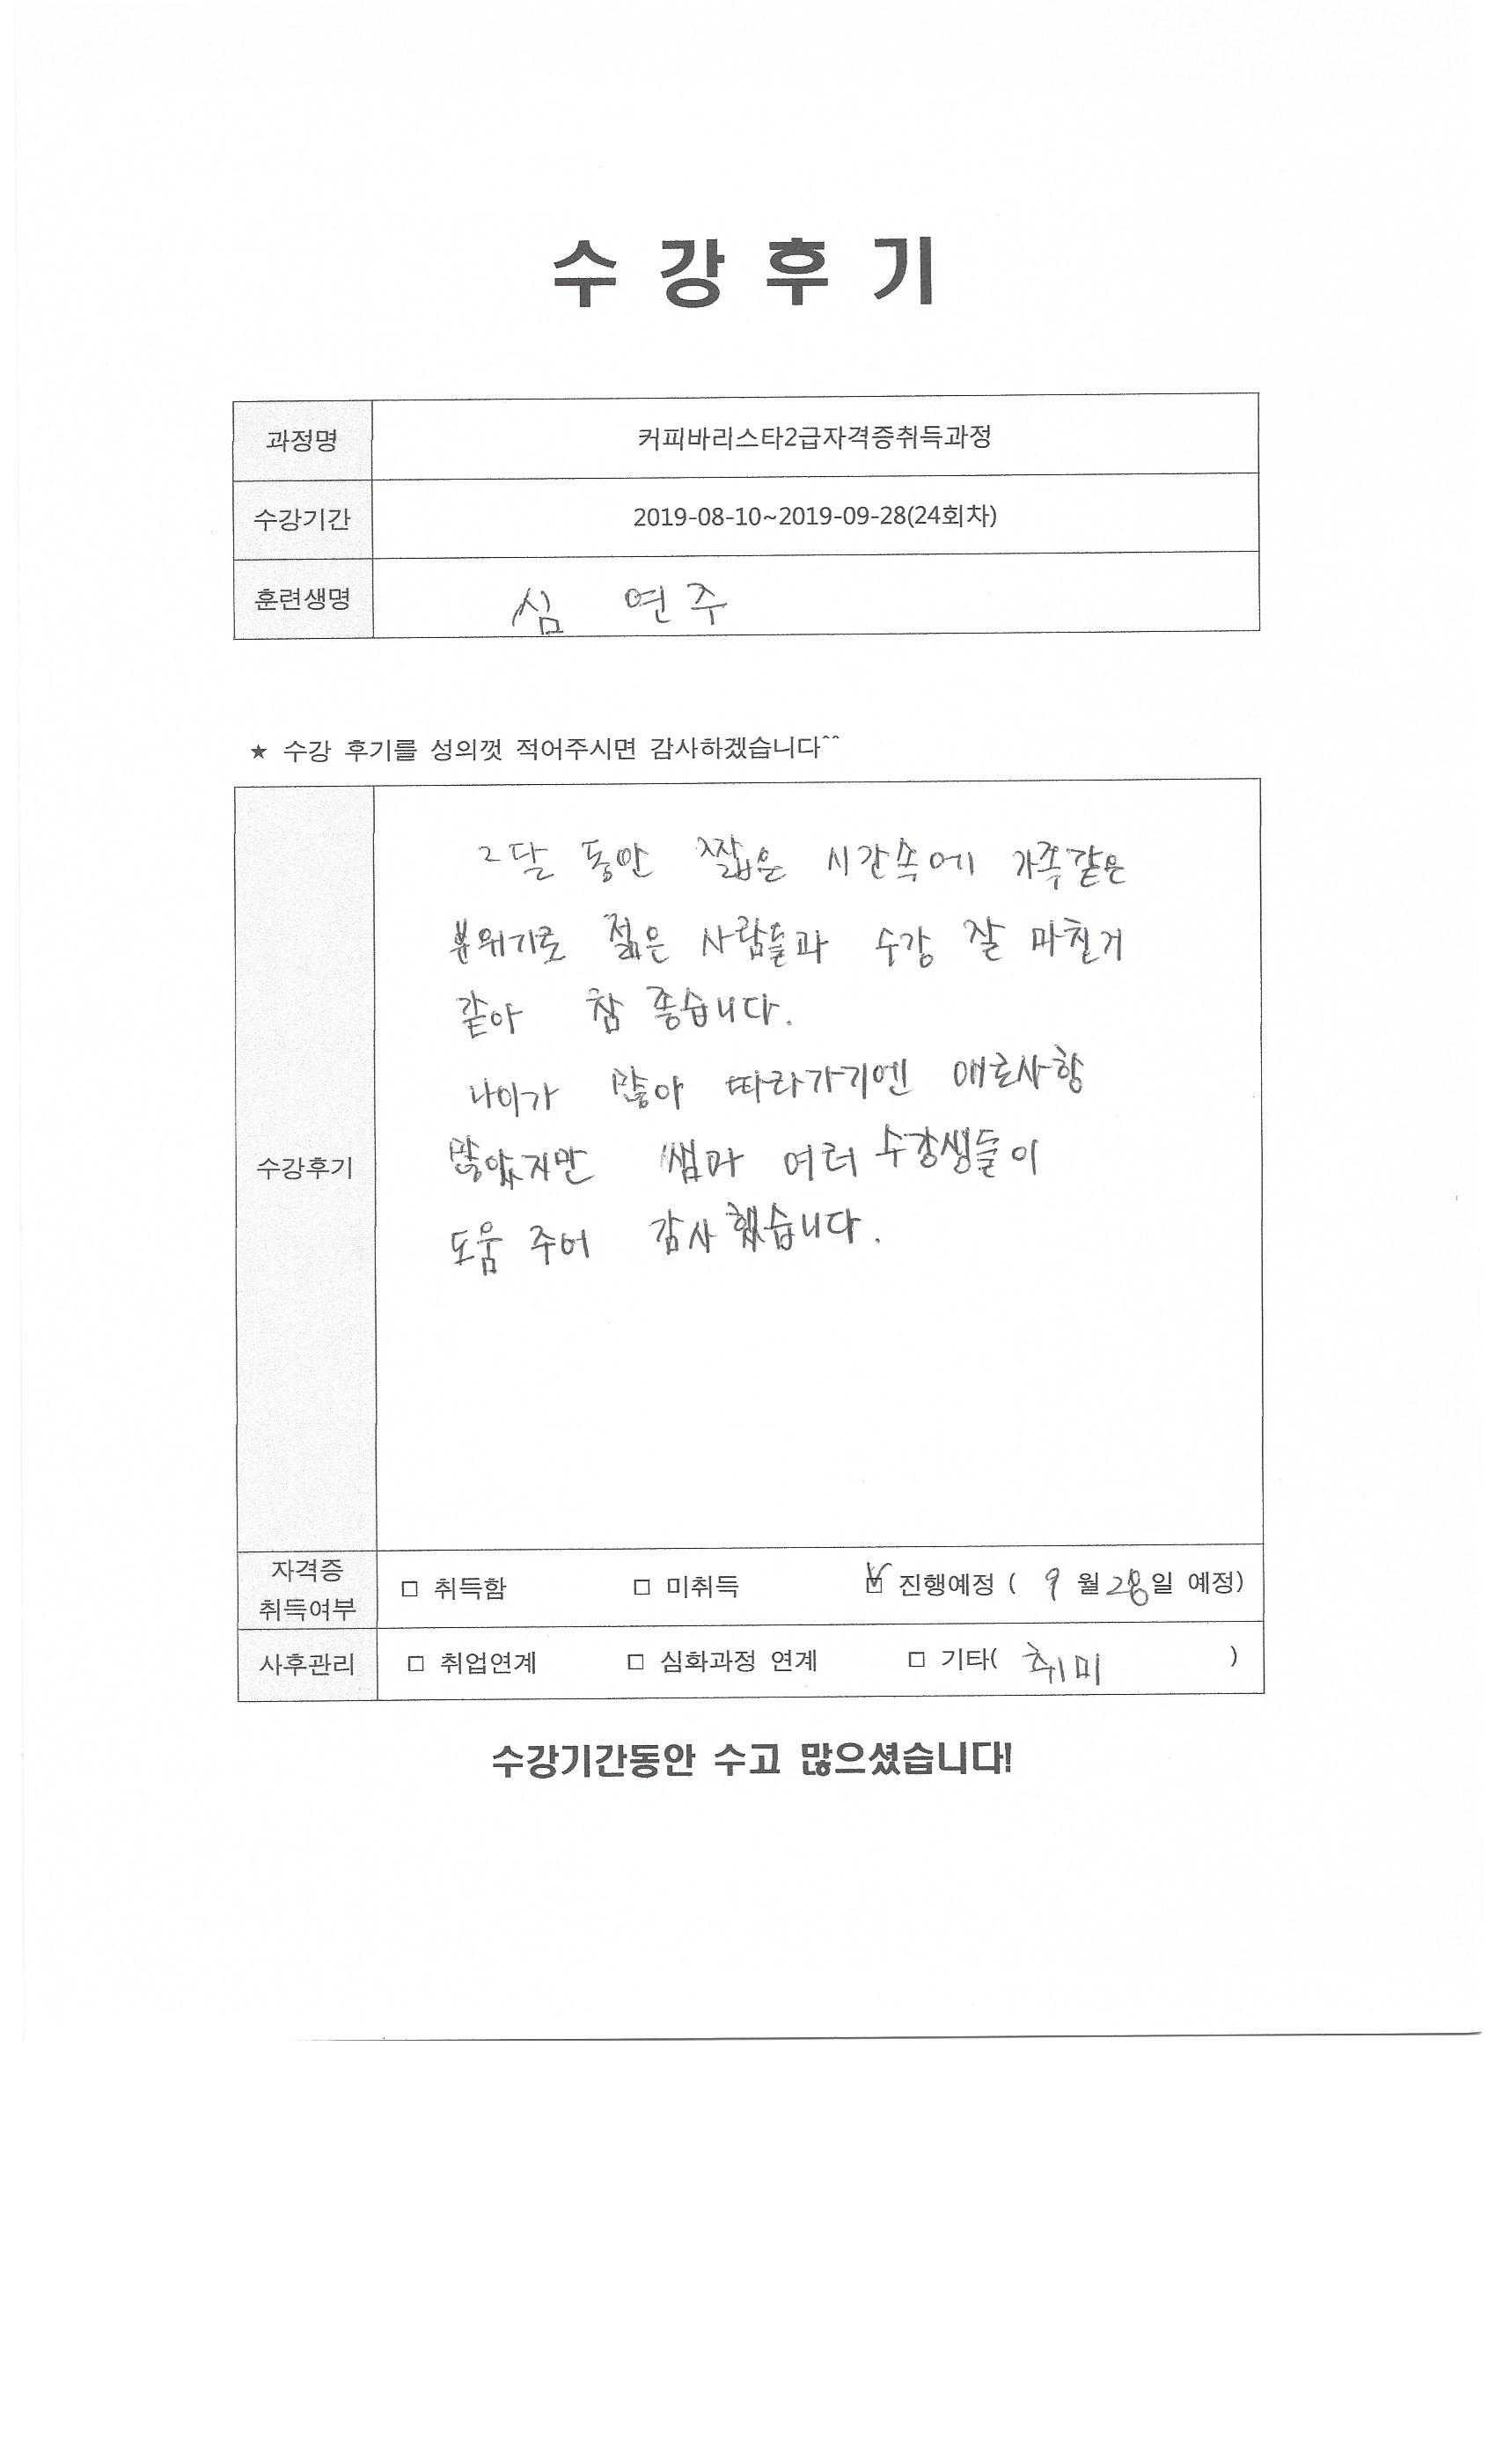 수 강 후 기
과정명 커피바리스타2급자격증취득과정
수강기간 2019-08-10~2019-09-28(24회차)
훈련생명 심 연주
★ 수강 후기를 성의껏 적어주시면 감사하겠습니다^^
수강후기
2달 동안 짧은 시간속에 가족같은
분위기로 젊은 사람들과 수강 잘 마친거
같아 참 좋습니다.
나이가 많아 따라가기엔 애로사항
많았지만 쌤과 여러 수강생들이
도움 주어 감사했습니다.
자격증
취득여부 □ 취득함 □ 미취득 ☑ 진행예정 ( 9 월 28일 예정)
사후관리 □ 취업연계 □ 심화과정 연계 □ 기타( 취미 )
수강기간동안 수고 많으셨습니다!